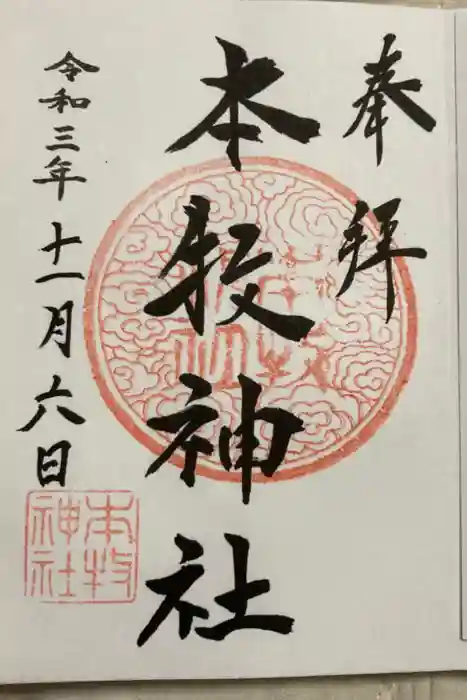 奉拝
本牧神社
令和三年十一月六日
本牧
神社